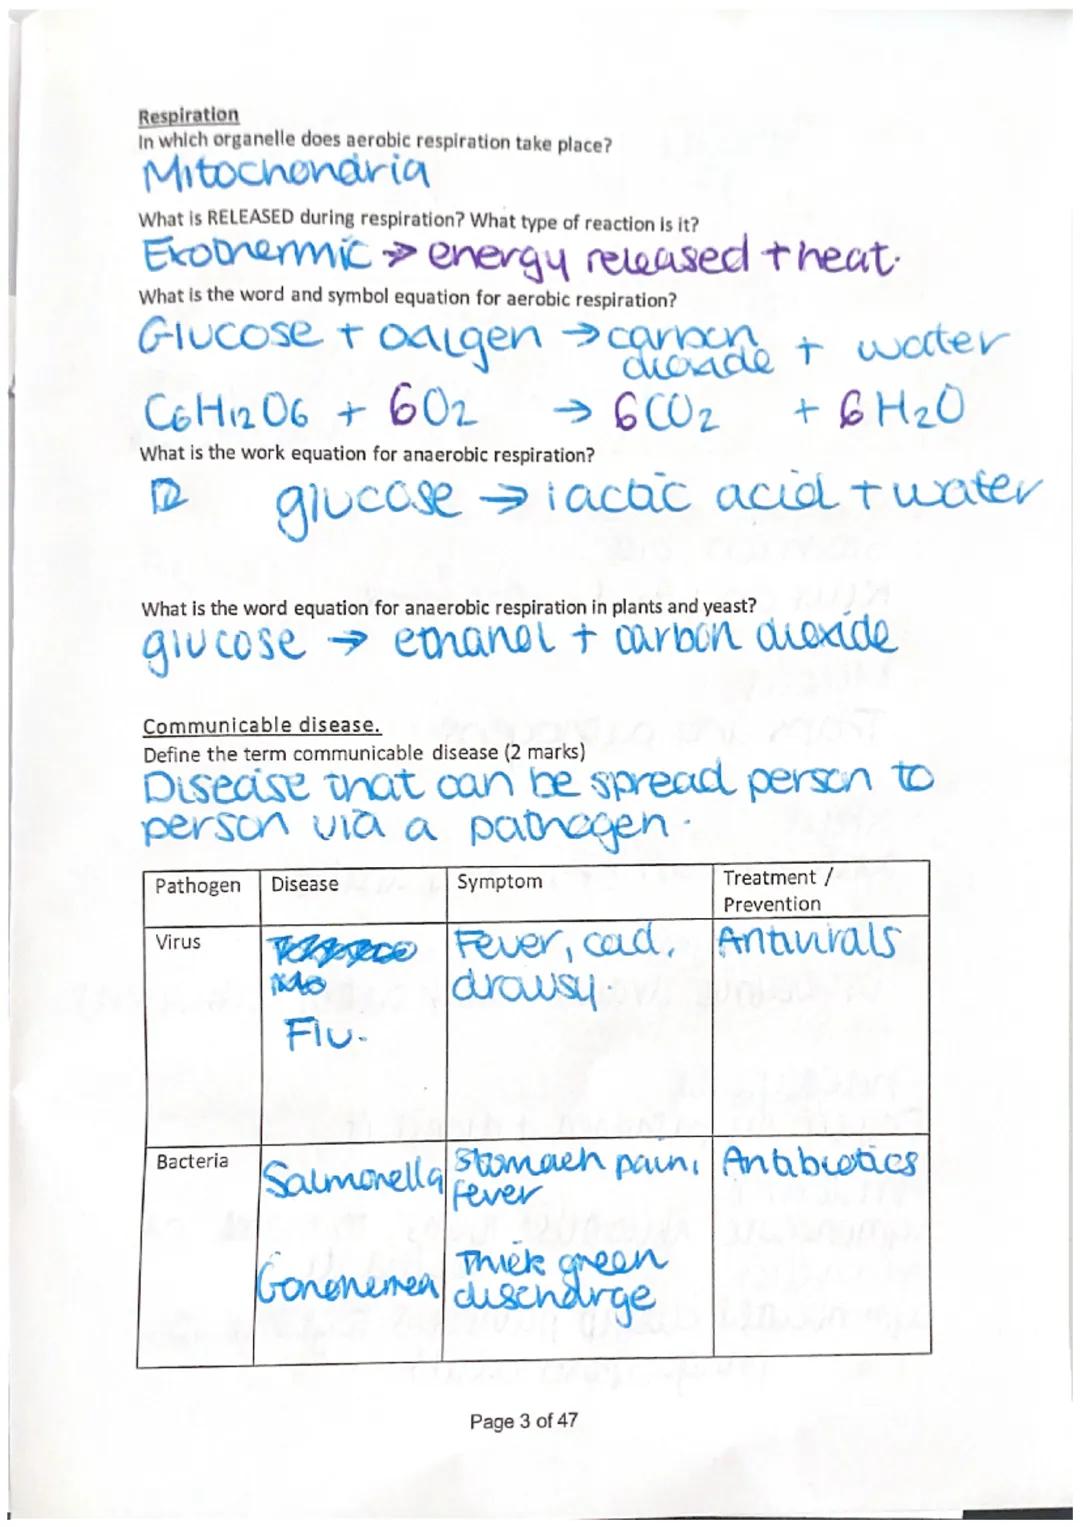 Respiration
In which organelle does aerobic respiration take place?
Mitochondria
What is RELEASED during respiration? What type of reaction is it?
Exothermic → energy released + heat.
What is the word and symbol equation for aerobic respiration?
Glucose + oxygen → carbon dioxide + water
C6H12O6 + 6O2 → 6CO2 + 6H2O
What is the work equation for anaerobic respiration?
glucose → lactic acid + water
What is the word equation for anaerobic respiration in plants and yeast?
glucose → ethanol + carbon dioxide
Communicable disease.
Define the term communicable disease (2 marks)
Disease that can be spread person to
person via a pathogen.
Pathogen Disease Symptom Treatment / Prevention
Virus Flu. Fever, drowsy. Antivirals
Bacteria Salmonella Stomach pain, fever Antibiotics
Gonorrhea Thick green discharge
Page 3 of 47